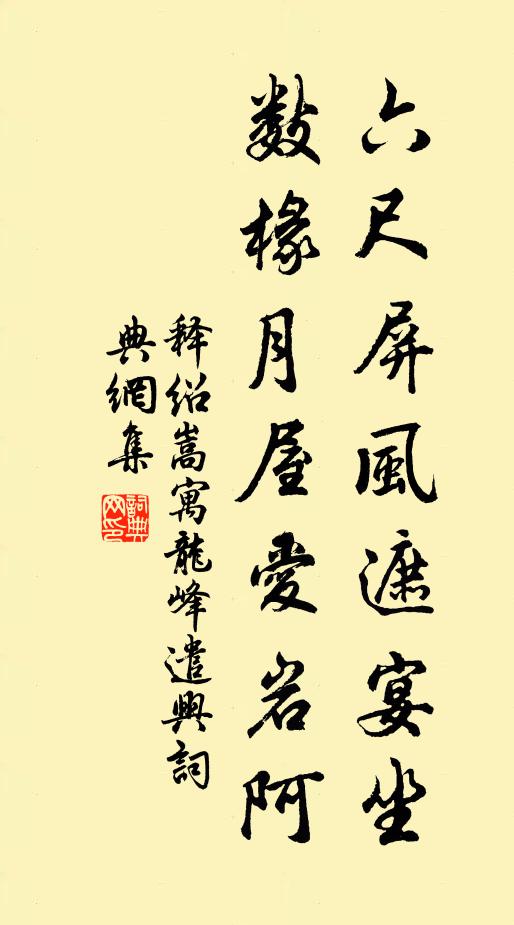 六尺屏風遮宴坐
数椽月屋愛岩阿
释绍嵩寓龍峰遣興詞
典網集
詞典
网印